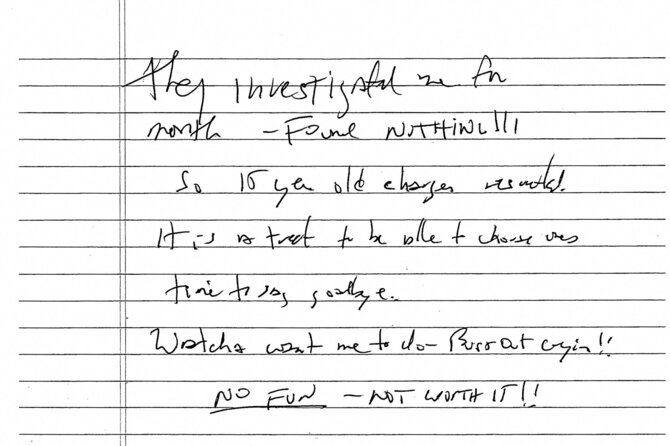 They investigated me for
month - Found NOTHING!!!
So 15 year old charges resulted!
It is a treat to be able to choose ones
time to say goodbye.
Watcha want me to do - Burst out cryin!!
NO FUN - NOT WORTH IT!!